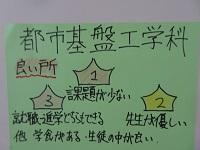 都市基盤工学科
良い所
1
課題が少ない
3
就職・進学どちらもできる
2
先生が優しい
他 学食がある・生徒の中が良い